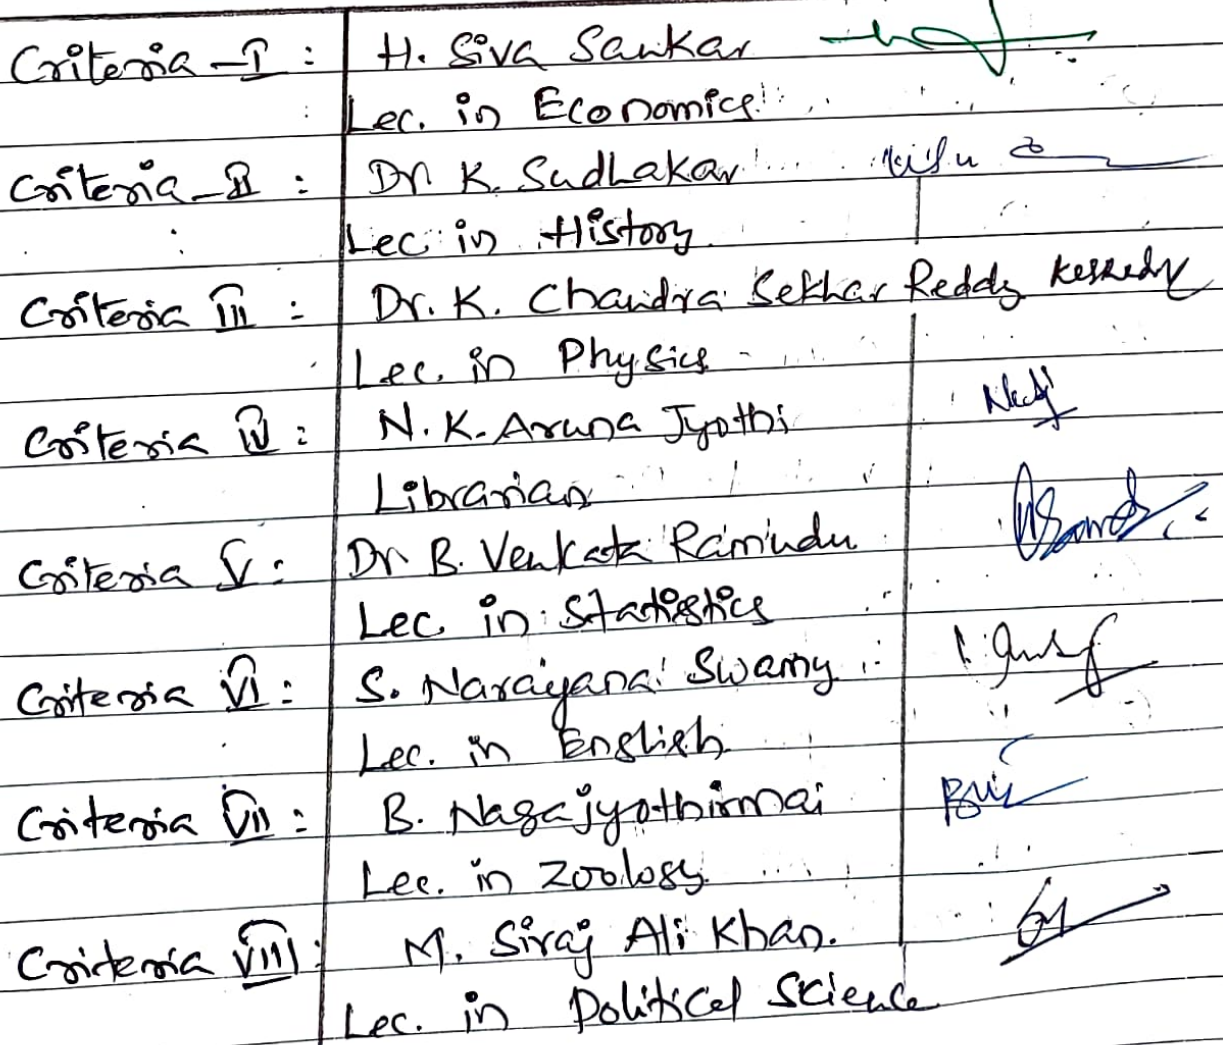 Criteria - I : H. Siva Sankar
: Lec. in Economics
Criteria - II : Dr. K. Sudhakar
Lec in History
Criteria III : Dr. K. Chandra Sekhar Reddy
Lec. in Physics
Criteria IV : N. K. Aruna Jyothi
Librarian
Criteria V : Dr. B. Venkata Ramudu
Lec. in Statistics
Criteria VI : S. Narayana Swamy
Lec. in English
Criteria VII : B. Nagajyothirmai
Lec. in Zoology
Criteria VIII : M. Siraj Ali Khan.
Lec. in Political Science